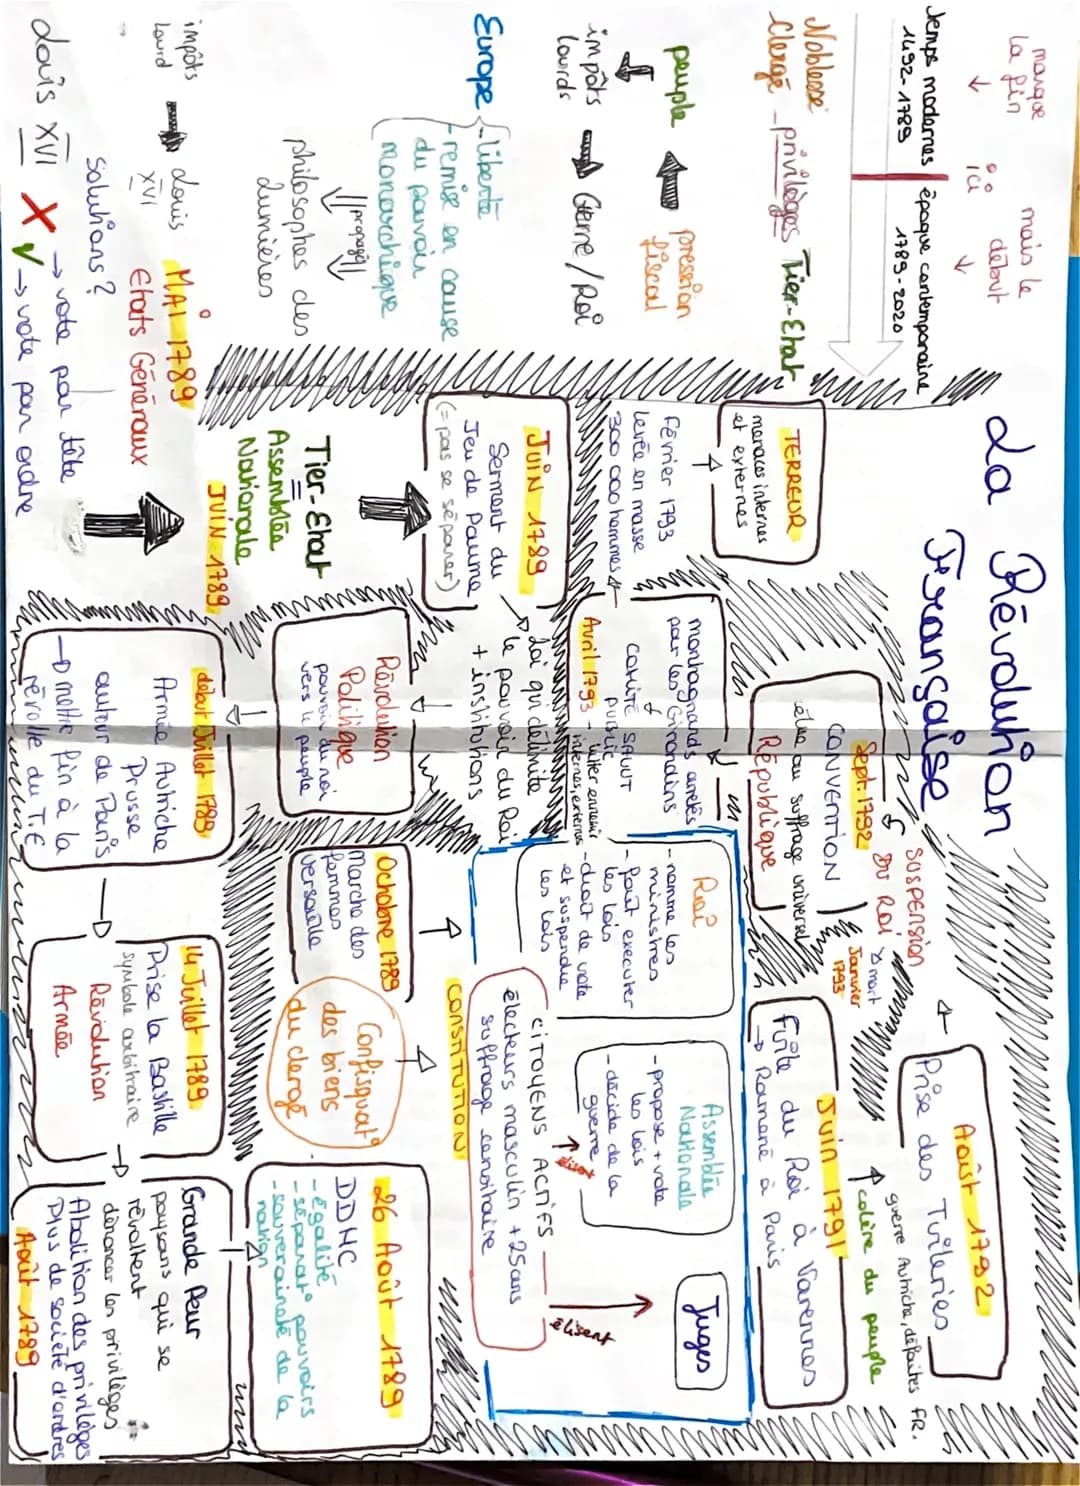 La Révolution
Française
marque
la fin
ici
mais le
début
Temps modernes
1492-1789
époque contemporaine
1789-2020
Noblesse
Clergé - privilèges
Tier-Etat
peuple
pression
fiscal
impôts
lourds
Guerre/Roi
Europe
- liberté
- remise en cause
du pouvoir
monarchique
propagé
philosophes des
Lumières
impôts
lourd
Louis
XVI
solutions?
MAI 1789
Etats Généraux
Louis XVI
X → vote par tête
V → vote par ordre
JUIN 1789
Tier-Etat
=
Assemblée
Nationale
JUIN 1789
Serment du
Jeu de Paume
(= pas se séparer)
→ Loi qui délimite
le pouvoir du Roi
+ institutions
Révolution
Politique
pouvoir du roi
vers le peuple
début Juillet 1789
Armée Autriche
Prusse
autour de Paris
→ mettre fin à la
révolte du T.E
14 Juillet 1789
Prise la Bastille
symbole arbitraire
Révolution
Armée
Grande Peur
paysans qui se
révoltent
dénoncer les privilèges
Abolition des privilèges
Plus de société d'ordres
Août 1789
26 Août 1789
DDHC
- égalité
- séparat° pouvoirs
- souveraineté de la
nation
Confisquat°
des biens
du clergé
Octobre 1789
Marche des
femmes
versaille
CONSTITUTION
Roi
- nomme les
ministres
- fait executer
les lois
- droit de vote
et suspendre
les lois
Assemblée
Nationale
- propose + vote
les lois
- décide de la
guerre
Juges
élisent
élisent
CITOYENS ACTIFS
électeurs masculin +25ans
suffrage censitaire
JUIN 1791
Fuite du Roi à Varennes
→ Ramené à Paris
colère du peuple
guerre Autriche, défaites FR.
Août 1792
Prise des Tuileries
SUSPENSION
DU Roi
mort
Janvier
1793
Sept. 1792
CONVENTION
élue au suffrage universel
République
montagnards arrêtés
par les Girondins
COMITÉ SALUT
PUBLIC
Avril 1793
- lutter ennemis
internes, externes
Février 1793
levée en masse
300 000 hommes
TERREUR
menaces internes
et externes